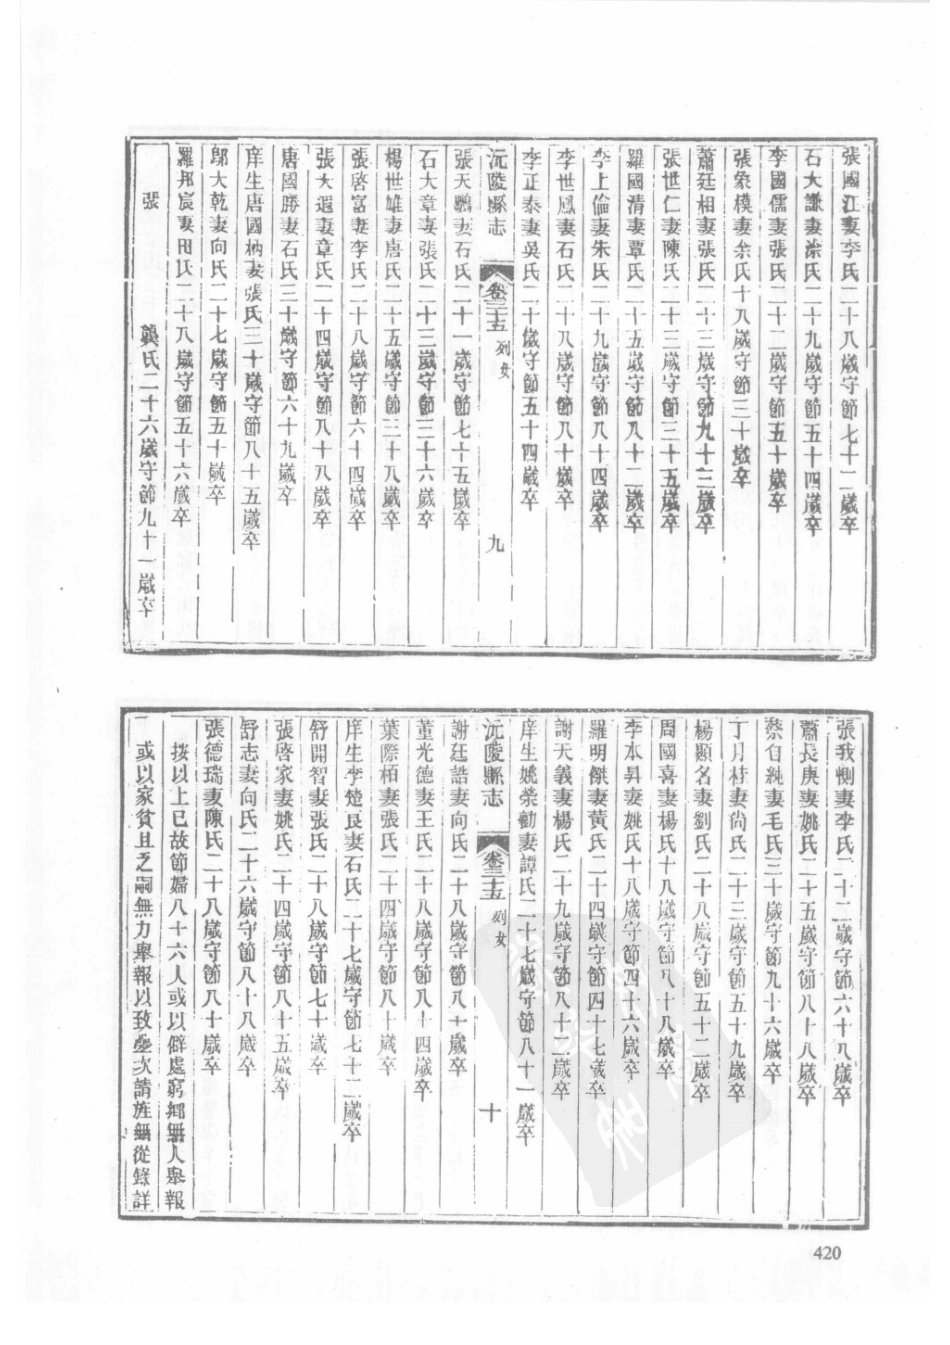 張國江妻李氏二十八歲守節七十二歲卒
石大謙妻涂氏二十九歲守節五十四歲卒
李國儒妻張氏二十二歲守節五十歲卒
張象模妻余氏十八歲守節三十歲卒
蕭廷相妻張氏二十三歲守節九十三歲卒
張世仁妻陳氏二十三歲守節三十五歲卒
羅國清妻覃氏二十五歲守節八十二歲卒
李上倫妻朱氏二十九歲守節八十四歲卒
李世鳳妻石氏二十八歲守節八十歲卒
李正泰妻吳氏二十歲守節五十四歲卒
沅陵縣志 卷三十五 列女 九
張天鵬妻石氏二十一歲守節七十五歲卒
石大章妻張氏二十三歲守節三十六歲卒
楊世雄妻唐氏二十五歲守節三十八歲卒
張啓富妻李氏二十八歲守節六十四歲卒
張大遐妻章氏二十四歲守節八十八歲卒
唐國勝妻石氏三十歲守節六十九歲卒
庠生唐國柄妻張氏三十歲守節八十五歲卒
鄔大乾妻向氏二十七歲守節五十歲卒
羅邦宸妻田氏二十八歲守節五十六歲卒
張 龔氏二十六歲守節九十一歲卒
張我惻妻李氏二十二歲守節六十八歲卒
蕭長庚妻姚氏二十五歲守節八十八歲卒
蔡自純妻毛氏三十歲守節九十六歲卒
丁月桂妻尙氏二十三歲守節五十九歲卒
楊顯名妻劉氏二十八歲守節五十二歲卒
周國喜妻楊氏十八歲守節八十八歲卒
李本昇妻姚氏十八歲守節四十六歲卒
羅明傑妻黃氏二十四歲守節四十七歲卒
謝天義妻楊氏二十九歲守節八十二歲卒
庠生姚榮勳妻譚氏二十七歲守節八十一歲卒
沅陵縣志 卷三十五 列女 十
謝廷誥妻向氏二十八歲守節八十歲卒
董光德妻王氏二十八歲守節八十四歲卒
葉際栢妻張氏二十四歲守節八十歲卒
庠生李楚良妻石氏二十七歲守節七十二歲卒
舒開智妻張氏二十八歲守節七十歲卒
張啓家妻姚氏二十四歲守節八十五歲卒
舒志妻向氏二十六歲守節八十八歲卒
張德瑞妻陳氏二十八歲守節八十歲卒
按以上已故節婦八十六人或以僻處窮鄉無人舉報
或以家貧且乏嗣無力舉報以致壘次請旌無從錄詳
420